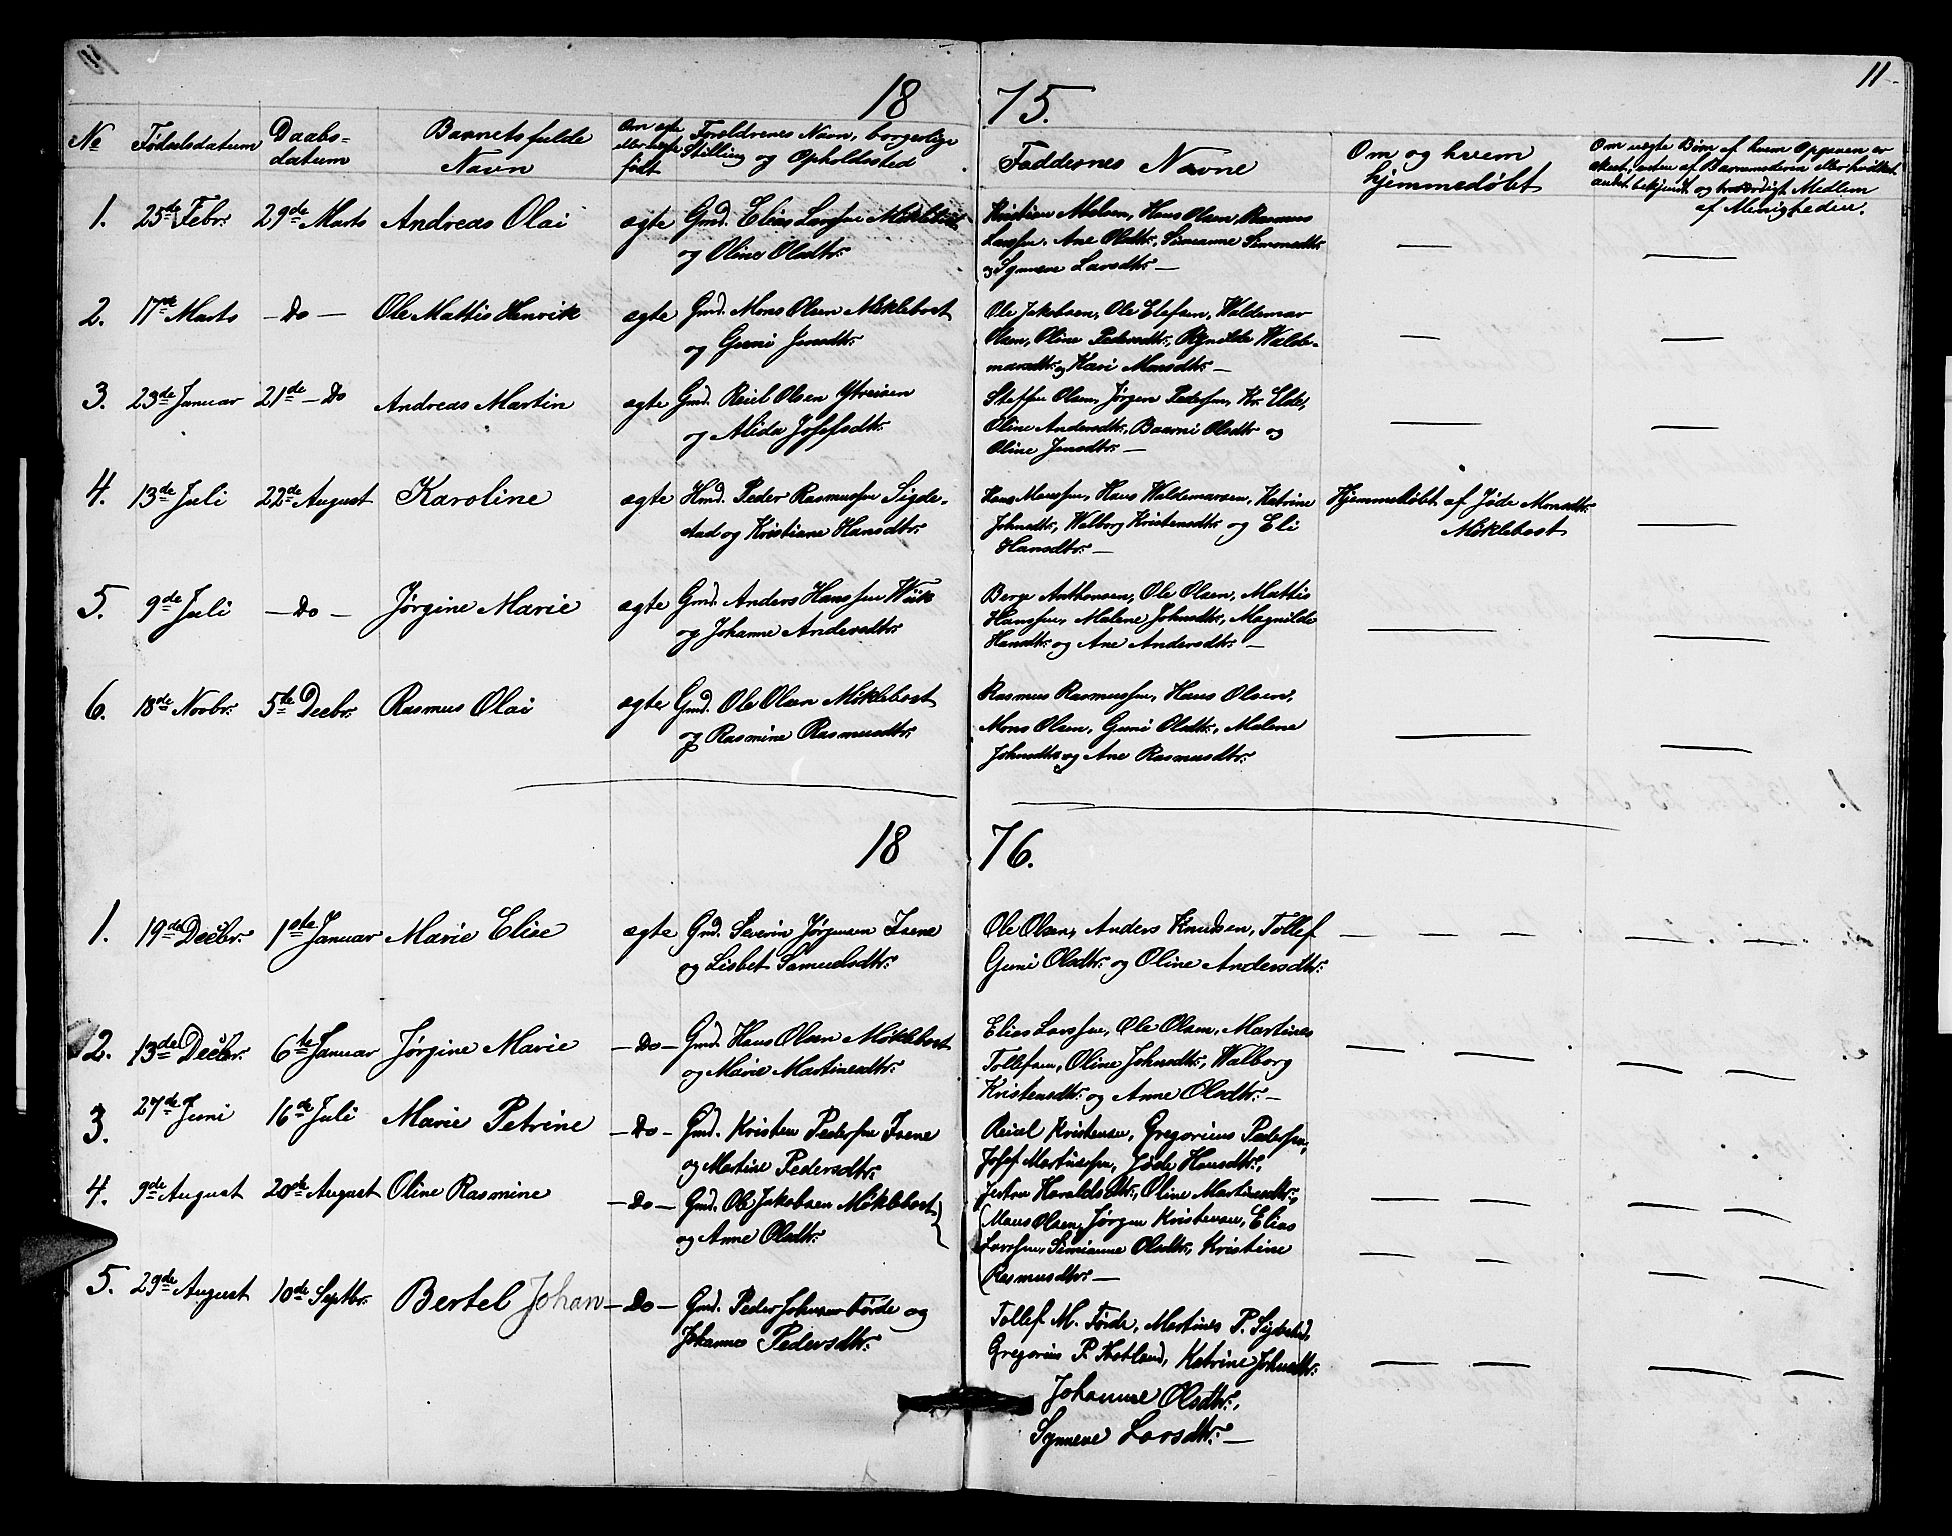 11
18 75.
No Fødselsdatum Daabs-datum Barnets fulde Navn Om ægte eller uægte født Forældrenes Navn, borgerlige Stilling og Opholdssted Faddernes Navne Om og hvem hjemmedøbt Om uægte Børn af hvem Opgaven er skeet, enten af Barnemoderen eller hvilket andet bekjendt og troværdigt Medlem af Menigheden.
1. 25de Febr. 29de Marts Andreas Olai ægte Gmd. Elias Larssen Myklebust
og Oline Olsdtr.
Kristian Nielsen, Hans Olsen, Rasmus
Larssen, Ane Olsdtr., Simianne Simonsdtr.
og Synneve Larsdtr. —
2. 17de Marts — Do — Ole Mattis Henrik ægte Gmd. Mons Olsen Myklebost
og Guni Jensdtr.
Ole Jakobsen, Ole Elefsen, Waldemar
Olsen, Oline Pedersdtr., Ragnilde Walde-
marsdtr. og Kari Monsdtr. —
3. 23de Januar 21de — Do Andreas Martin ægte Gmd. Reiel Olsen Ytreisen
og Alida Josefsdtr.
Steffen Olsen, Jørgen Pederssen, Kr. Elde,
Oline Andersdtr., Baarni Olsdtr. og
Oline Jensdtr. —
4. 13de Juli 22de August Karoline ægte Hmd. Peder Rasmussen Sigde-
stad og Kristiane Hansdtr.
Hans Monssen, Hans Waldemarsen, Katrine
Johnsdtr., Walborg Kristensdtr. og Eli
Hansdtr. —
Hjemmedøbt af Jøde Monsdtr.
Myklebost
5. 9de Juli — Do — Jørgine Marie ægte Gmd. Anders Hanssen Wiik
og Johanne Andersdtr.
Berge Anthonsen, Ole Olsen, Mattis
Hanssen, Malene Johnsdtr., Magnilde
Hansdtr. og Ane Andersdtr. —
6. 18de Novbr. 5te Decbr. Rasmus Olai ægte Gmd. Ole Olsen Myklebost
og Rasmine Rasmusdtr.
Rasmus Rasmussen, Hans Olsen,
Mons Olsen, Guni Olsdtr., Malene
Johnsdtr. og Ane Rasmusdtr.
18 76.
1. 19de Decbr. 1ste Januar Marie Elise ægte Gmd. Severin Jørgensen Isene
og Lisbet Samuelsdtr.
Ole Olsen, Anders Knudsen, Tollef
Guni Olsdtr. og Oline Andersdtr.
2. 13de Decbr. 6te Januar Jørgine Marie — Do — Gmd. Hans Olsen Myklebost
og Marie Martinesdtr.
Elias Larssen, Ole Olsen, Martines
Tollefsen, Oline Johnsdtr., Walborg
Kristensdtr. og Anne Olsdtr. —
3. 27de Juni 16de Juli Marie Petrine — Do — Gmd. Kristen Pederssen Isene
og Martine Pedersdtr.
Reiel Kristensen, Gregorius Pederssen,
Josef Martinssen, Jøde Hansdtr.,
Jertru Haraldsdtr., Oline Martinesdtr.
4. 9de August 20de August Oline Rasmine — Do — Gmd. Ole Jakobsen Myklebost
og Anne Olsdtr.
Mons Olsen, Jørgen Kristensen, Elias
Larssen, Simianne Olsdtr., Kristine
Rasmusdtr. —
5. 29de August 10de Septbr. Bertel Johan — Do — Gmd. Peder Johnsen Førde og
Johanne Pedersdtr.
Tollef M. Førde, Martines P. Sigdestad,
Gregorius P. Hestland, Katrine Johnsdtr.
Johanne Olsdtr.,
Synneve Larsdtr. —